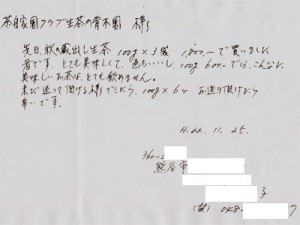 茶自家園クラブ生茶の青木園 様
先日、秋の蔵出し生茶 100g×3袋 1,800.-で買いました
者です。とても美味しくて、色もいいし、100g 600-では、こんな
美味しいお茶は、とても飲めません。
まだ送って頂ける様でしたら、100g×6ヶ お送り頂けたら
幸いです。
H.22. 11. 25.
360-0
熊谷市
子
(電) 048-
7